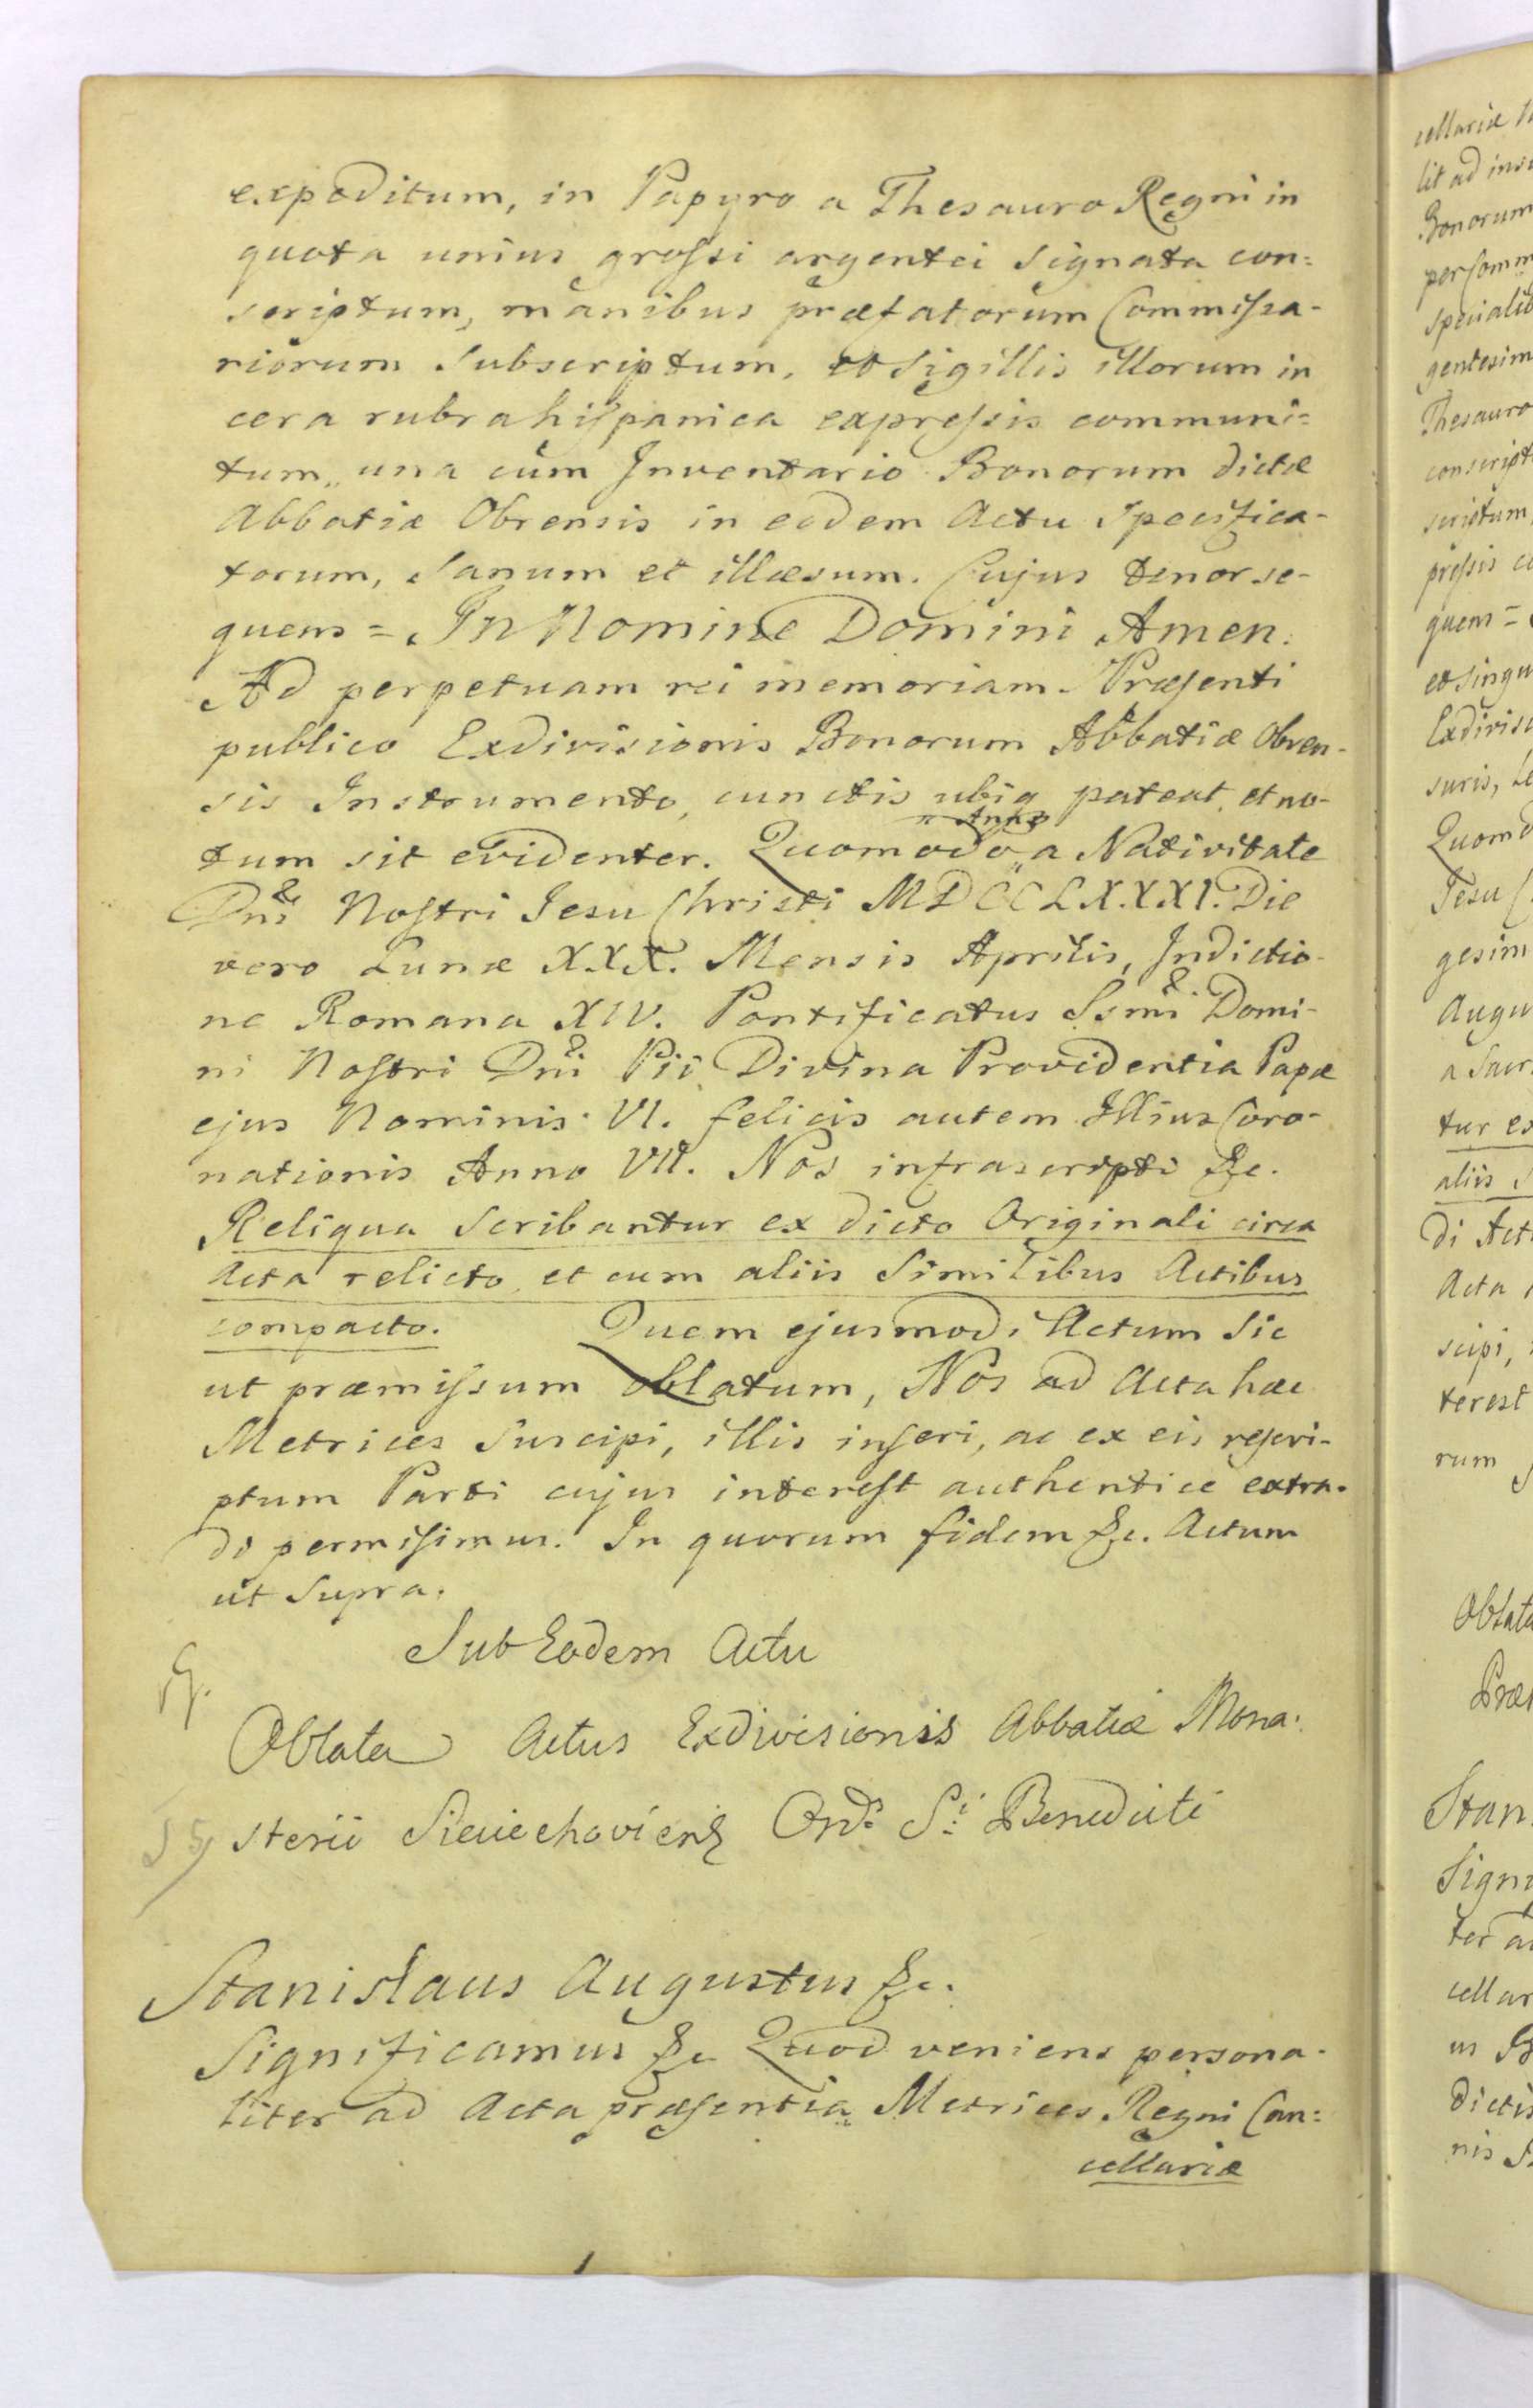 expeditum, in Papyro a Thesauro Regni in
quota unius grossi argentei signata con=
scriptum, manibus præfatorum Commissa-
riorum subscriptum, et Sigillis illorum in
cera rubra hispanica expressis communi=
tum, una cum Inventario Bonorum dictæ
Abbatiæ Obrensis in eodem Actu Specifica-
torum, Sanum et illæsum. Cujus tenor se-
quens = In Nomine Domini Amen.
Ad perpetuam rei memoriam. Præsenti
publico Exdivisionis Bonorum Abbatiæ Obren-
sis Instrumento, cunctis ubiq pateat, et no-
Anno
tum sit evidenter. Quomodo a Nativitate
Dni Nostri Jesu Christi MDCCLXXXI. Die
vero Lunæ XXX. Mensis Aprilis, Indictio-
ne Romana XIV. Pontificatus Ssmi Domi-
ni Nostri Dni Pii Divina Providentia Papæ
ejus Nominis VI. felicis autem Illius Coro-
nationis Anno VII. Nos infrascripti &c.
Reliqua Scribantur ex dicto Originali circa
Acta relicto, et cum aliis Similibus Actibus
compacto. Quem ejusmodi Actum Sic
ut præmissum oblatum, Nos ad Acta hæc
Metrices Suscipi, illis inseri, ac ex eis rescri-
ptum Parti cujus interest authentice extra-
di permisimus. In quorum fidem &c. Actum
ut Supra.
Sub Eodem Actu
Oblata Actus Exdivisionis Abbatiæ Mona-
sterii Sieciechoviens Ord: S: Benedicti
Stanislaus Augustus &c.
Significamus &c Quod veniens persona-
liter ad Acta præsentia Metrices Regni Can=
cellariæ
cellariæ
lit ad
Bonorum
per Comm
speciali
gentesim
Thesauro
conscript
scriptum
pressis
quens =
et singu
Exdivisi
suris,
Quomo
Jesu
gesim
Augu
a Sacr
tur ex
aliis
di Act
Acta
scipi,
terest
rum
Oblat
Præ
Stan
Signi
ter a
cellar
us
dictis
nis